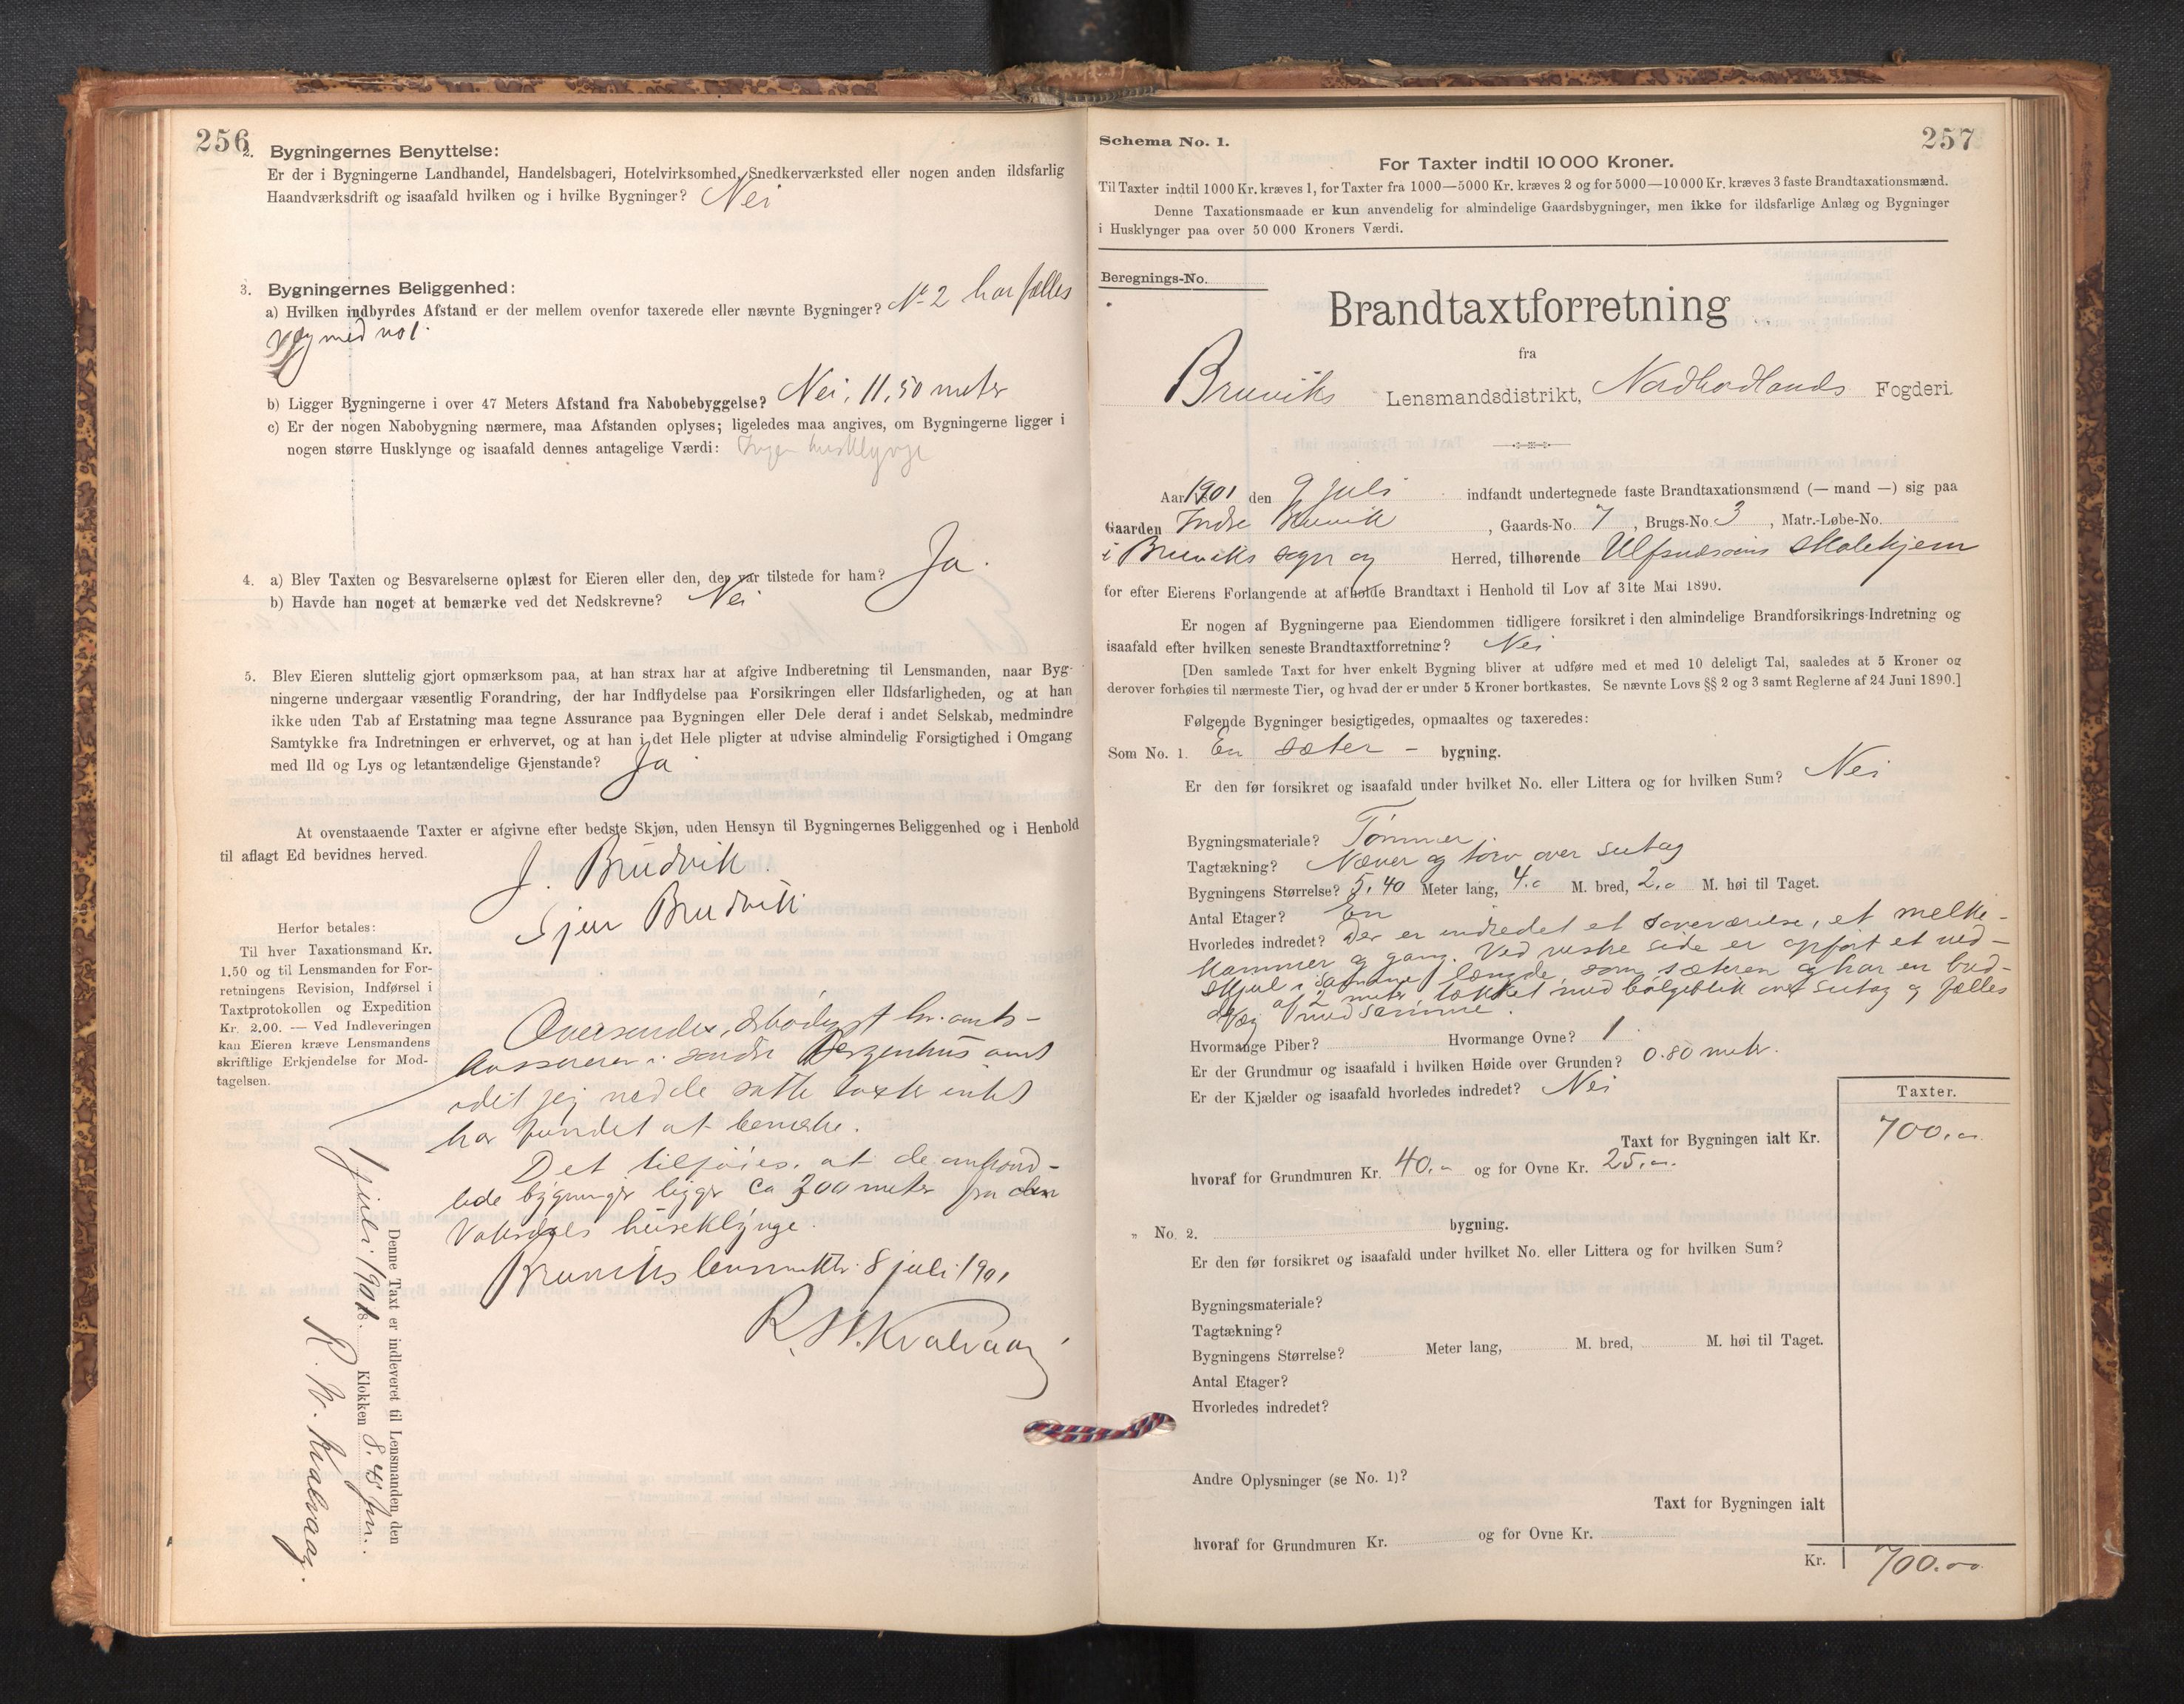 256
2. Bygningernes Benyttelse:
Er der i Bygningerne Landhandel, Handelsbageri, Hotelvirksomhed, Snedkerværksted eller nogen anden ildsfarlig
Haandværksdrift og isaafald hvilken og i hvilke Bygninger? Nei
3. Bygningernes Beliggenhed:
a) Hvilken indbyrdes Afstand er der mellem ovenfor taxerede eller nævnte Bygninger? No 2 har fælles
væg med no 1.
b) Ligger Bygningerne i over 47 Meters Afstand fra Nabobebyggelse? Nei, 11,50 meter
c) Er der nogen Nabobygning nærmere, maa Afstanden oplyses; ligeledes maa angives, om Bygningerne ligger i
nogen større Husklynge og isaafald dennes antagelige Værdi: Ingen husklynge
4. a) Blev Taxten og Besvarelserne oplæst for Eieren eller den, der var tilstede for ham? Ja.
b) Havde han noget at bemærke ved det Nedskrevne? Nei
5. Blev Eieren sluttelig gjort opmærksom paa, at han strax har at afgive Indberetning til Lensmanden, naar Byg-
ningerne undergaar væsentlig Forandring, der har Indflydelse paa Forsikringen eller Ildsfarligheden, og at han
ikke uden Tab af Erstatning maa tegne Assurance paa Bygningen eller Dele deraf i andet Selskab, medmindre
Samtykke fra Indretningen er erhvervet, og at han i det Hele pligter at udvise almindelig Forsigtighed i Omgang
med Ild og Lys og letantændelige Gjenstande? Ja
At ovenstaaende Taxter er afgivne efter bedste Skjøn, uden Hensyn til Bygningernes Beliggenhed og i Henhold
til aflagt Ed bevidnes herved.
J. Brudvik.
Sjur Brudvik
Herfor betales:
Til hver Taxationsmand Kr.
1.50 og til Lensmanden for For-
retningens Revision, Indførsel i
Taxtprotokollen og Expedition
Kr. 2.00. — Ved Indleveringen
kan Eieren kræve Lensmandens
skriftlige Erkjendelse for Mod-
tagelsen.
Oversendes, ærbødigst hr. amts-
kassereren i søndre Bergenhus amt
idet jeg ved de satte taxter intet
har fundet at bemærke.
Det tilføies, at de omhand-
lede bygninger ligger ca 300 meter fra den
Vaksdals huseklynge.
Bruviks lensmktr. 8 juli 1901
R. W. Kvalvaag
Denne Taxt er indleveret til Lensmanden den
1 juli 1901. Klokken 8.45 fm.
R. W. Kvalvaag.
257
Schema No. 1.
For Taxter indtil 10 000 Kroner.
Til Taxter indtil 1000 Kr. kræves 1, for Taxter fra 1000—5000 Kr. kræves 2 og for 5000—10 000 Kr. kræves 3 faste Brandtaxationsmænd.
Denne Taxationsmaade er kun anvendelig for almindelige Gaardsbygninger, men ikke for ildsfarlige Anlæg og Bygninger
i Husklynger paa over 50 000 Kroners Værdi.
Beregnings-No.
Brandtaxtforretning
fra
Bruviks Lensmandsdistrikt, Nordhordlands Fogderi.
Aar 1901 den 9 juli indfandt undertegnede faste Brandtaxationsmænd (— mand —) sig paa
Gaarden Indre Bruvik, Gaards-No. 7, Brugs-No. 3, Matr.-Løbe-No.
i Bruviks sogn og Herred, tilhørende Ulfsnesøens skolehjem
for efter Eierens Forlangende at afholde Brandtaxt i Henhold til Lov af 31te Mai 1890.
Er nogen af Bygningerne paa Eiendommen tidligere forsikret i den almindelige Brandforsikrings-Indretning og
isaafald efter hvilken seneste Brandtaxtforretning? Nei
[Den samlede Taxt for hver enkelt Bygning bliver at udføre med et med 10 deleligt Tal, saaledes at 5 Kroner og
derover forhøies til nærmeste Tier, og hvad der er under 5 Kroner bortkastes. Se nævnte Lovs §§ 2 og 3 samt Reglerne af 24 Juni 1890.]
Følgende Bygninger besigtigedes, opmaaltes og taxeredes:
Som No. 1. En sæter - bygning.
Er den før forsikret og isaafald under hvilket No. eller Littera og for hvilken Sum? Nei
Bygningsmateriale? Tømmer.
Tagtækning? Næver og torv over sutag
Bygningens Størrelse? 5,40 Meter lang, 4.0 M. bred, 2.0 M. høi til Taget.
Antal Etager? En
Hvorledes indredet? Der er indredet et soveværelse, et melke-
kammer og gang. Ved vestre side er opført et ved-
skjul i samme længde som sæteren og har en bred-
de af 2 meter, tækket med bølgeblik over sutag og fælles
væg med samme.
Hvormange Piber? Hvormange Ovne? 1
Er der Grundmur og isaafald i hvilken Høide over Grunden? 0.80 metr.
Er der Kjælder og isaafald hvorledes indredet? Nei
Taxter.
Taxt for Bygningen ialt Kr. 700.-
hvoraf for Grundmuren Kr. 40.- og for Ovne Kr. 25.-
„ No. 2. bygning.
Er den før forsikret og isaafald under hvilket No. eller Littera og for hvilken Sum?
Bygningsmateriale?
Tagtækning?
Bygningens Størrelse? Meter lang, M. bred, M. høi til Taget.
Antal Etager?
Hvorledes indredet?
Andre Oplysninger (se No. 1)?
Taxt for Bygningen ialt
hvoraf for Grundmuren Kr. og for Ovne Kr.
Kr. 700.00